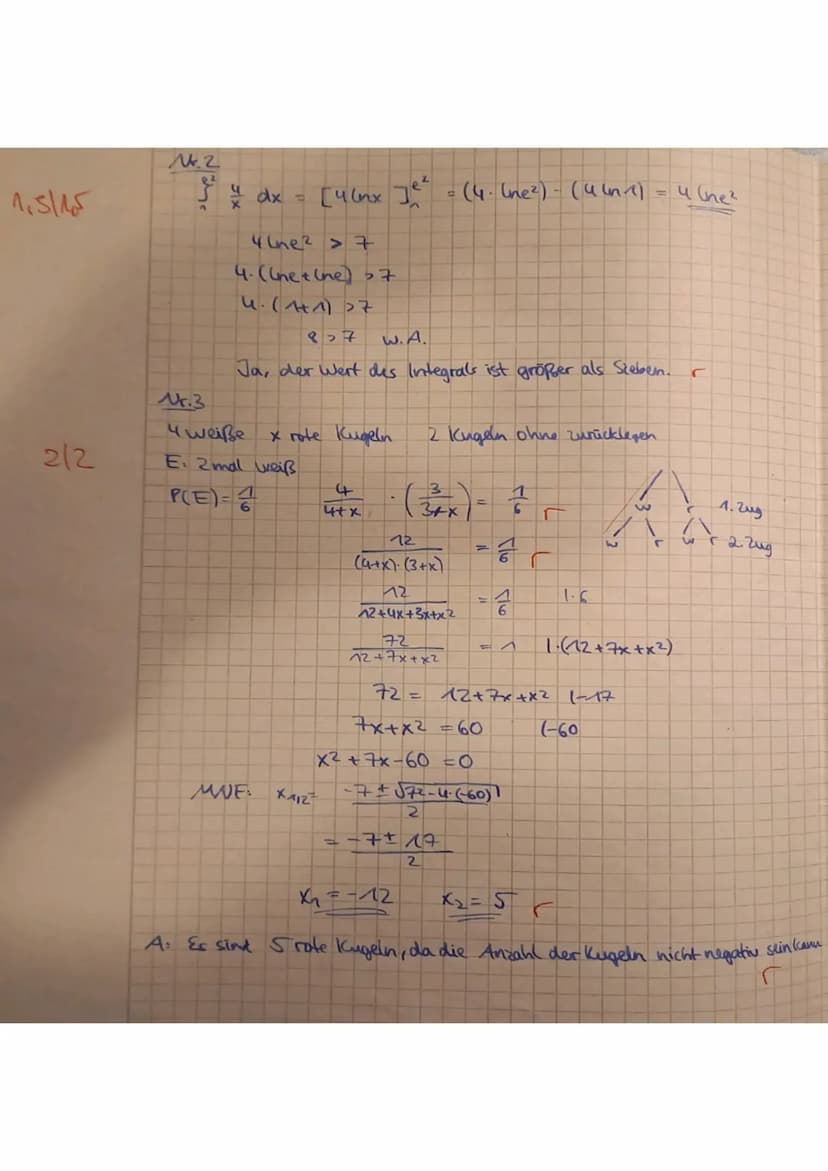 Nr. 2
1,5/1,5
∫₁^e² 4/x dx = [4lnx]₁^e² = (4·lne²) - (4ln1) = 4lne²
4lne² > 7
4·(lne+lne) > 7
4·(1+1) > 7
8 > 7 w.A.
Ja, der Wert des Integrals ist größer als Sieben. r
Nr. 3
4 weiße x rote Kugeln 2 Kugeln ohne zurücklegen
2/2
E: 2mal weiß
P(E) = 1/6 4/(4+x) · (3/(3+x)) = 1/6 r
w r 1. Zug
w r w r 2. Zug
12/((4+x)·(3+x)) = 1/6 r
12/(12+4x+3x+x²) = 1/6 |·6
72/(12+7x+x²) = 1 |·(12+7x+x²)
72 = 12+7x+x² |-12
7x+x² = 60 |-60
x²+7x-60 = 0
MNF: x1/2 = (-7 ± √(7²-4·(-60)))/2
= (-7 ± 17)/2
x₁ = -12 x₂ = 5 r
A: Es sind 5 rote Kugeln, da die Anzahl der Kugeln nicht negativ sein kann
r